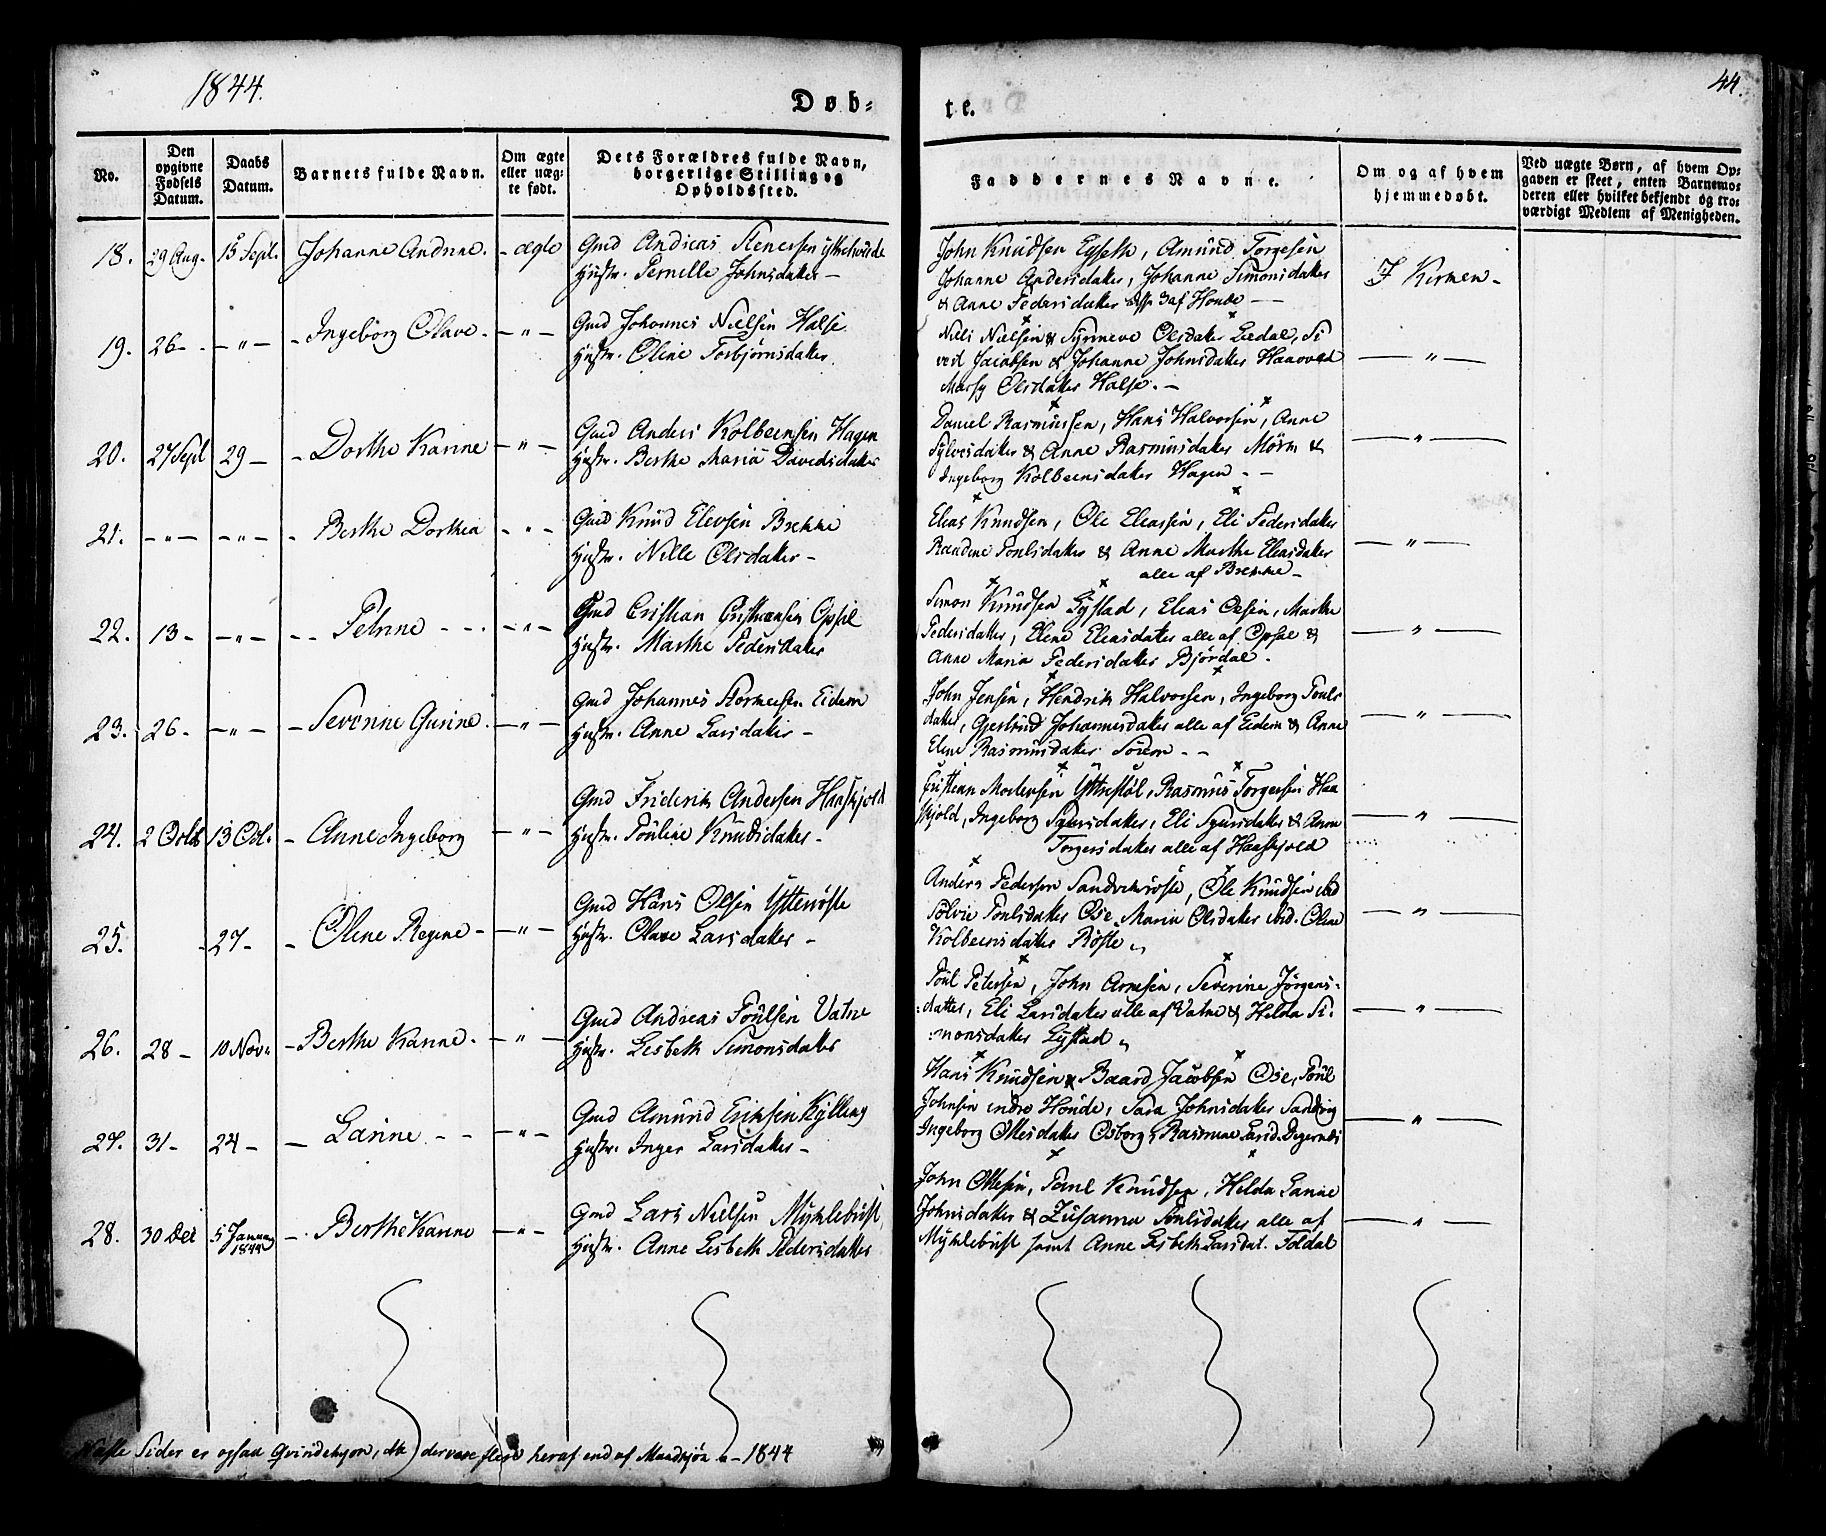 1844.
44.
Døb-
te.
No.
Den opgivne Fødsels Datum.
Daabs Datum.
Barnets fulde Navn.
Om ægte eller uægte født.
Dets Forældres fulde Navn, borgerlige Stilling og Opholdssted.
Faddernes Navne.
Om og af hvem hjemmedøbt.
Ved uægte Børn, af hvem Opgaven er skeet, enten Barnemoderen eller hvilket bekjendt og troværdigt Medlem af Menigheden.
18. 29 Aug. 15 Sept. Johanne Andrine. - ægte
Gmd Andreas Stenersen
Hustr. Pernille Johnsdatter -
John Knudsen Eyseth, Amund Torgesen
Johanne Andersdatter, Johanne Simonsdatter
& Anne Pedersdatter 3 af Honde - -
I Kirken -
19. 26 - - " - - Ingeborg Olave. - " -
Gmd Johannes Nielsen Halse
Hustr. Oline Torbjørnsdatter
Nils Nielsen & Synneve Olsdatter Lildal, Si
vert Jacobsen & Johanne Johnsdatter
Olsdatter Halse. -
- " -
20. 27 Sept 29 - - Dorthe Karine - " -
Gmd Anders Kolbeensen Hagen
Hustr. Berthe Maria Davidsdatter
Daniel Rasmussen, Hans Halvorsen, Anne
Sylvesdatter & Anne Rasmusdatter Mørk &
Ingeborg Kolbeensdatter Hagen - -
- " -
21. - " - - " - - Berthe Dorthea - " -
Gmd Knud Elevsen Brekke
Hustr. Nille Olsdatter -
Elias Knudsen, Ole Eleassen, Eli Pedersdatter
Randine Poulsdatter & Anne Marthe Eleasdatter
alle af Brekke -
- " -
22. 13 - - " - - - Petrine - - - - " -
Gmd Cristian Cristiansen Opsal
Hustr. Marthe Pedersdatter
Simon Knudsen Lystad, Elias Olsen, Marthe
Pedersdatter, Elene Eleasdatter alle af Opsal &
Anne Maria Pedersdatter Bjørdal.
- " -
23. 26 - - " - - Severine Gurine. - " -
Gmd Johannes Eidem
Hustr. Anne Larsdatter -
John Jensen, Hendrik Halvorsen, Ingeborg Pouls
datter, Gjertrud Johannesdatter alle af Eidem & Anne
Elene Rasmusdatter - -
- " -
24. 2 Octb 13 Oct. - Anne Ingeborg - " -
Gmd Friderik Andersen Haaskjold
Hustr. Pouline Knudsdatter -
Cristian Mortensen, Rasmus Torgersen Haa
skjold, Ingeborg Syversdatter, Eli Syversdatter & Anne
Torgersdatter alle af Haaskjold
- " -
25. - 27 - - Oline Regine - - " -
Gmd Hans Olsen Ytterøste
Hustr. Olave Larsdatter -
Anders Pedersen, Ole Knudsen ibd
Sølvie Poulsdatter Ose, Maria Olsdatter ibid. Oline
Kolbeensdatter Røste "
- " -
26. 28 - 10 Nov. - Berthe Karine - - " -
Gmd Andreas Poulsen Vatne
Hustr. Lisbeth Simonsdatter
Poul Petersen, John Arnesen, Severine Jørgens-
datter, Eli Larsdatter alle af Vatne & Hilda Si-
monsdatter Lystad "
- " -
27. 31 - 24 - - Larine - - - " -
Gmd Amund Eriksen Kylling
Hustr. Inger Larsdatter -
Hans Knudsen & Baard Jacobsen Ose, Poul
Johnsen indre Honde, Sara Johnsdatter Sandvig
Ingeborg Ottesdatter Osborg, Rasmine Larsd. Digernæs
- " -
28. 30 Dec 5 January 1844 - Berthe Karine - " -
Gmd Lars Nielsen Myhlebust
Hustr. Anne Lisbeth Pedersdatter
John Ottesen, Poul Knudsen, Hilda Larine
Johnsdatter & Zusanna Poulsdatter alle af
Myhlebust samt Anne Lisbeth Larsdat. Foldal
- " -
Næste Sider er ogsaa Qvindekjøn, da der vare flere heraf end af Mandkjøn - 1844